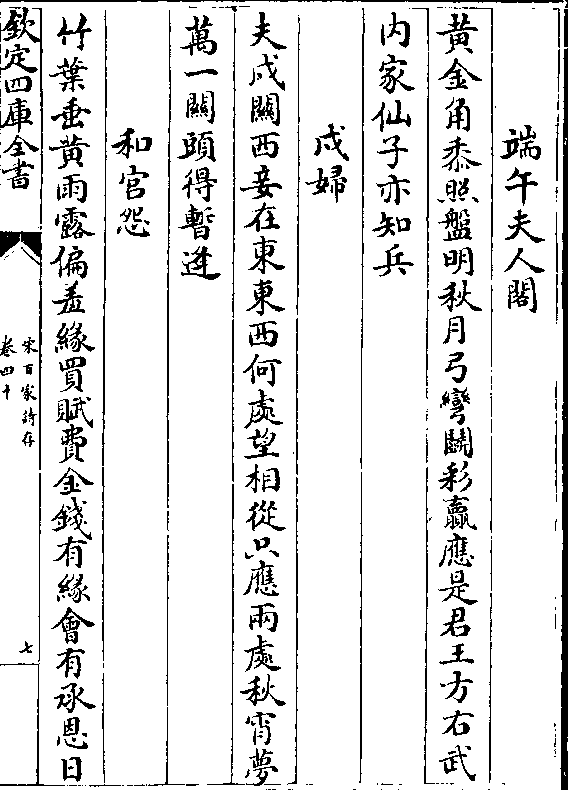 端午夫人閣
黃金角黍照盤明秋月弓彎鬭彩贏應是君王方右武
内家仙子亦知兵
戍婦
夫戍關西妾在東東西何處望相從只應兩處秋宵夢
萬一關頭得暫逢
和宫怨
竹葉垂黃雨露偏盖緣買賦費金錢有緣會有承恩日
欽定四庫全書
宋百家詩存
卷四十
七